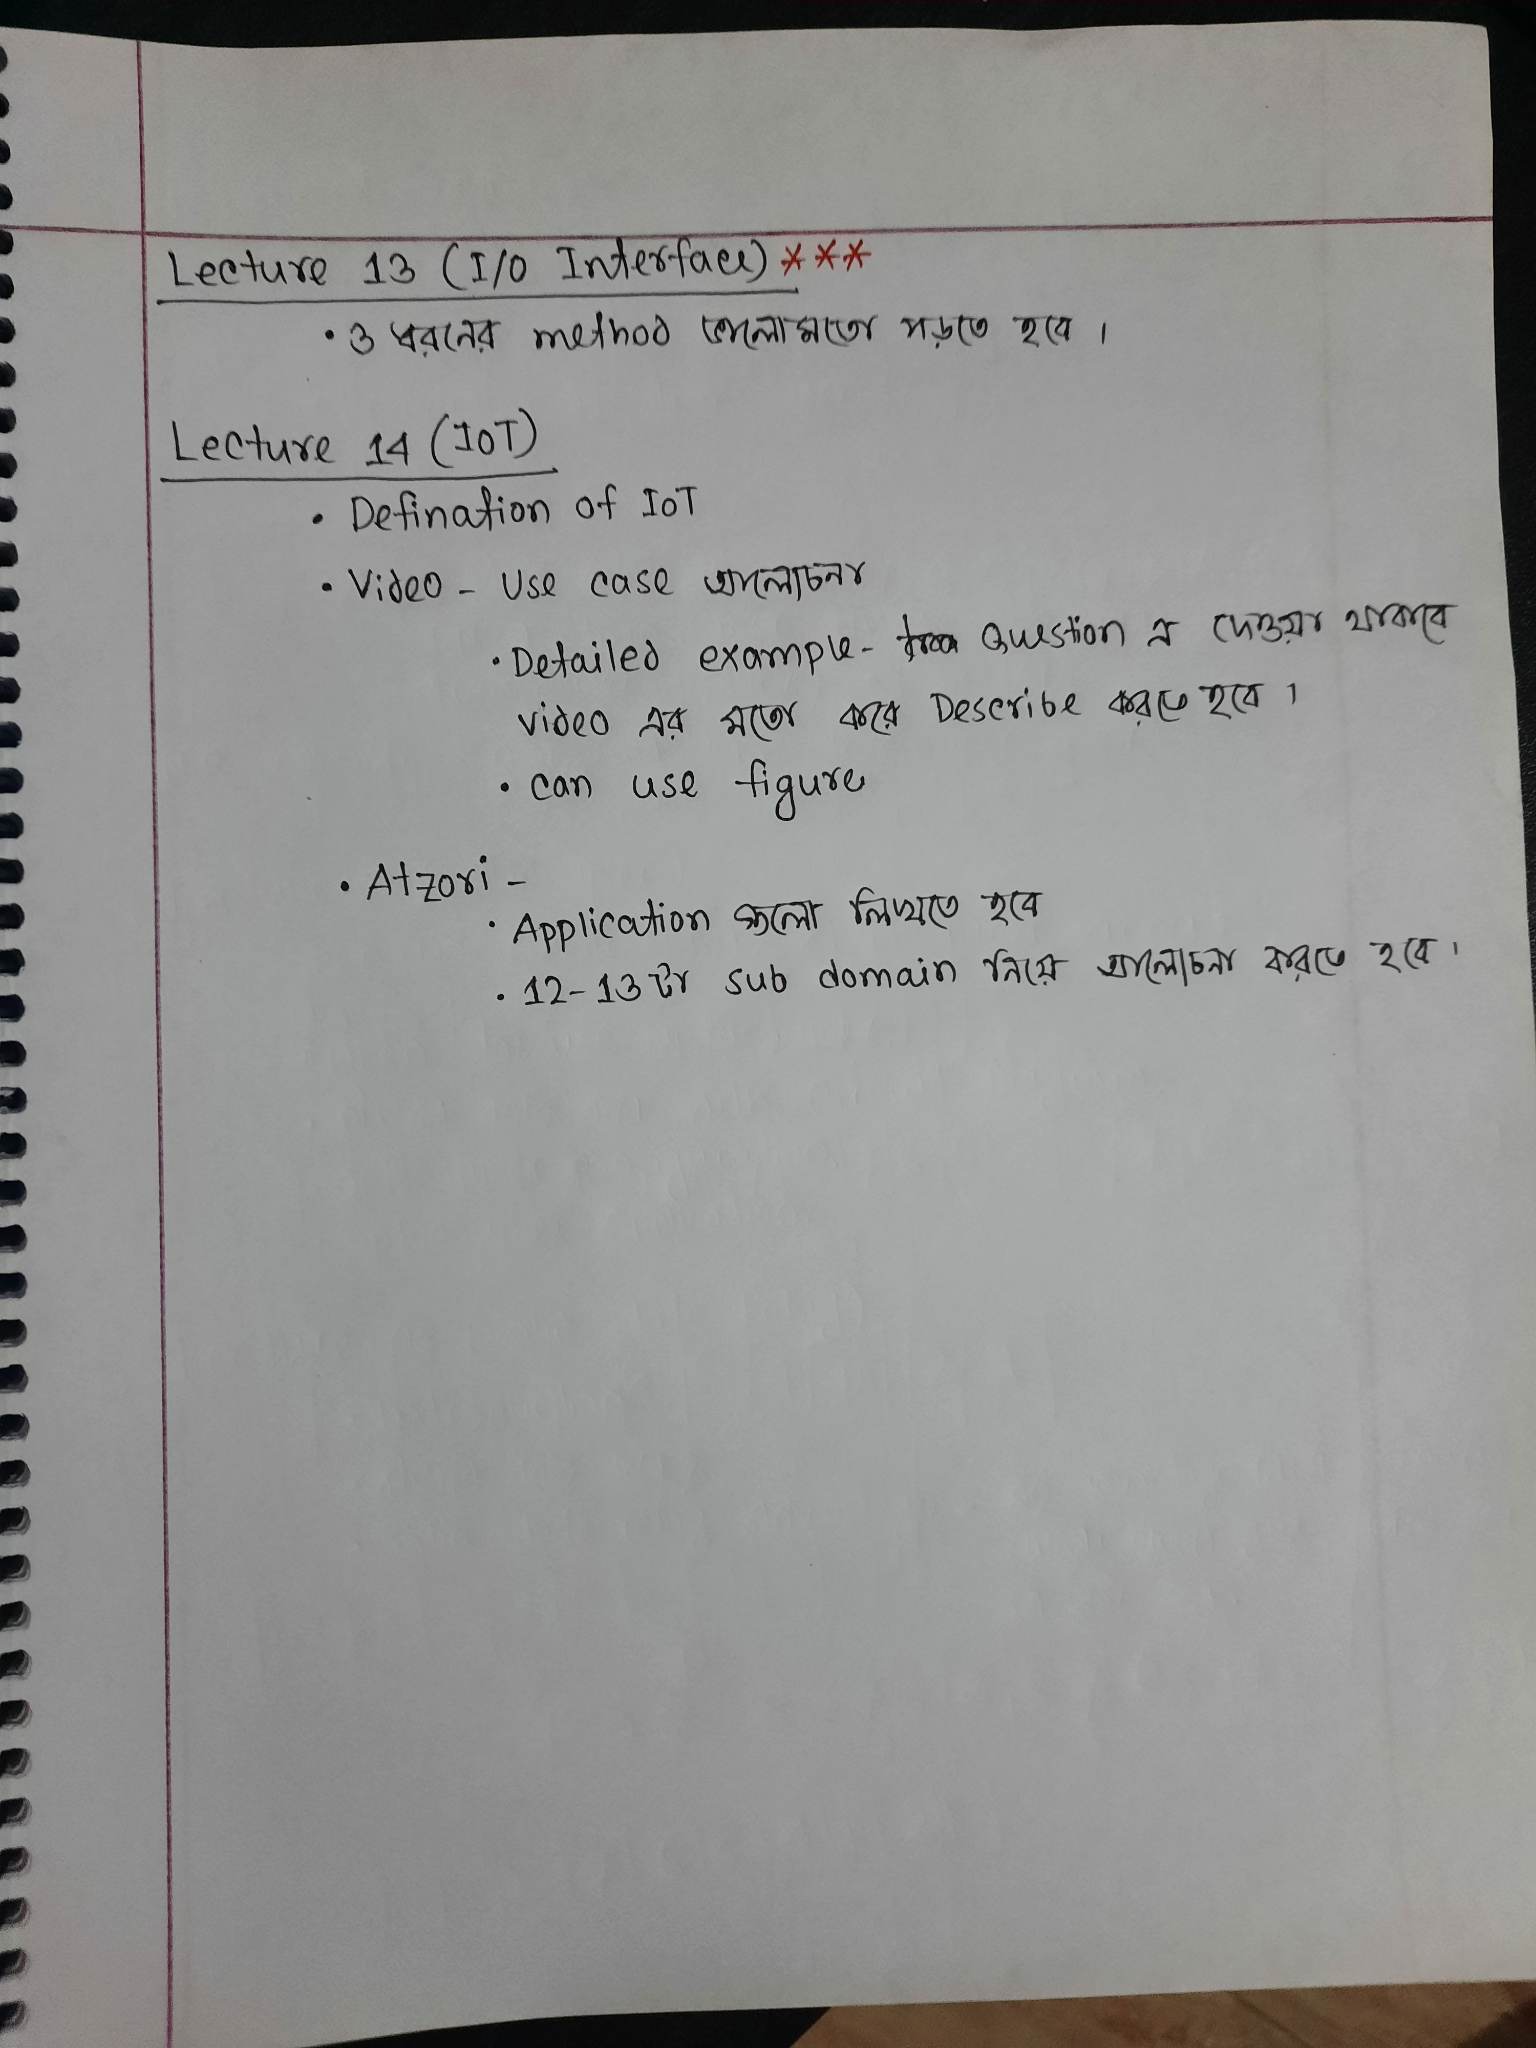 Lecture 13 (I/O Interface) ***
• 3 ধরনের method ভালোমতো পড়তে হবে।
Lecture 14 (IoT)
• Defination of IoT
• Video - Use case আলোচনা
• Detailed example - Question এ দেওয়া থাকবে
video এর মতো করে Describe করতে হবে।
• can use figure
• Atzori -
• Application গুলো লিখতে হবে
• 12-13 টা sub domain নিয়ে আলোচনা করতে হবে।